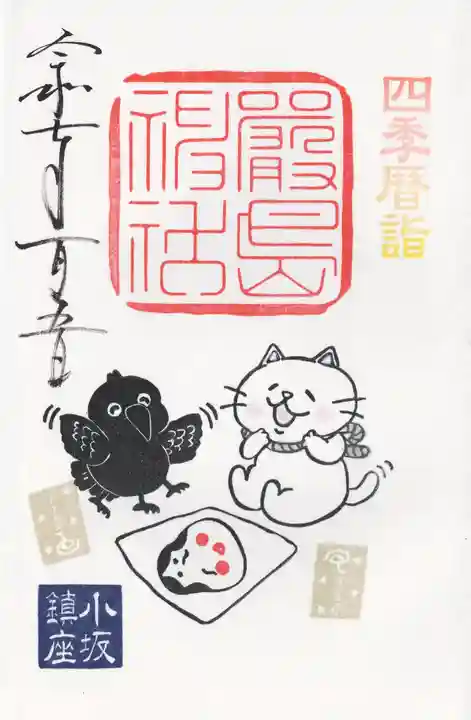 四季暦詣
嚴島
神社
令和七年一月
小坂
鎮座